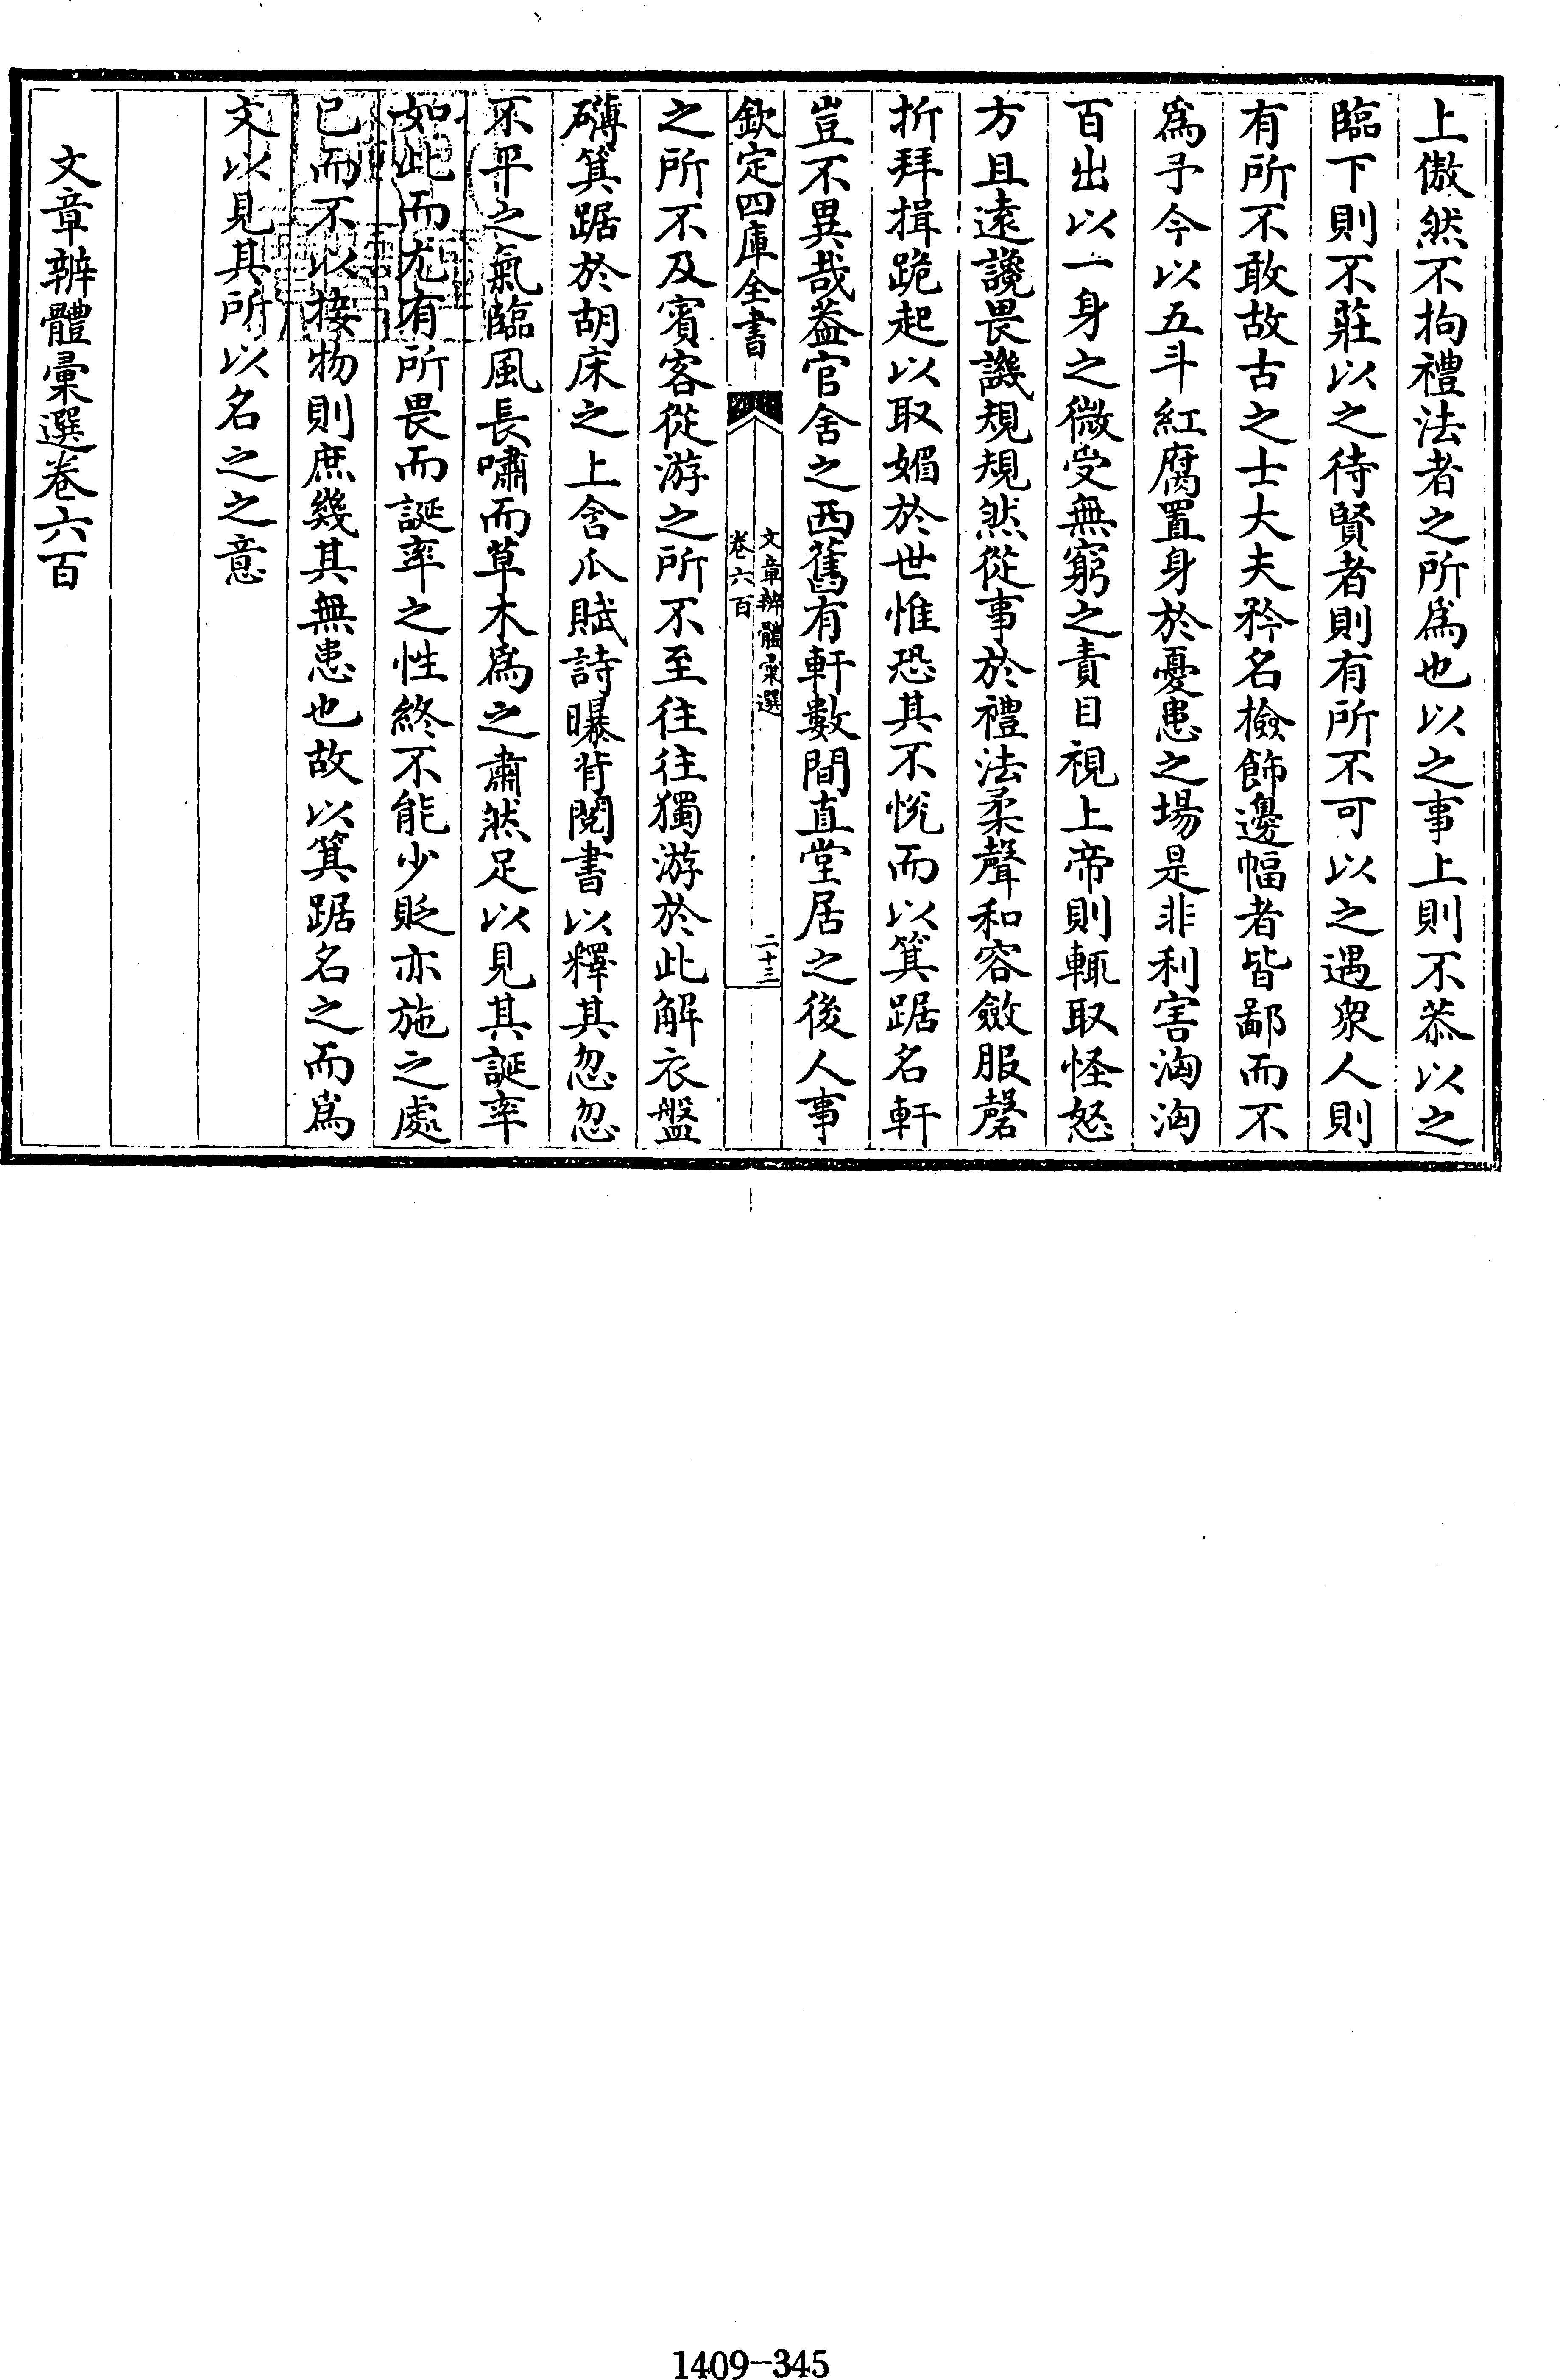 上傲然不拘禮法者之所爲也以之事上則不恭以之
臨下則不莊以之待賢者則有所不可以之遇衆人則
有所不敢故古之士大夫矜名檢飾邊幅者皆鄙而不
爲予今以五斗紅腐置身於憂患之場是非利害洶洶
百出以一身之微受無窮之責目視上帝則輒取怪怒
方且遠讒畏譏規規然從事於禮法柔聲和容斂服磬
折拜揖跪起以取媚於世惟恐其不悅而以箕踞名軒
豈不異哉葢官舍之西舊有軒數間直堂居之後人事
欽定四庫全書
文章辨體彙選
卷六百
二十三
之所不及賓客從游之所不至往往獨游於此解衣盤
礴箕踞於胡床之上含瓜賦詩曝背閱書以釋其忽忽
不平之氣臨風長嘯而草木爲之肅然足以見其誕率
如此而尤有所畏而誕率之性終不能少貶亦施之處
已而不以接物則庶幾其無患也故以箕踞名之而爲
文以見其所以名之之意
文章辨體彙選卷六百
1409-345